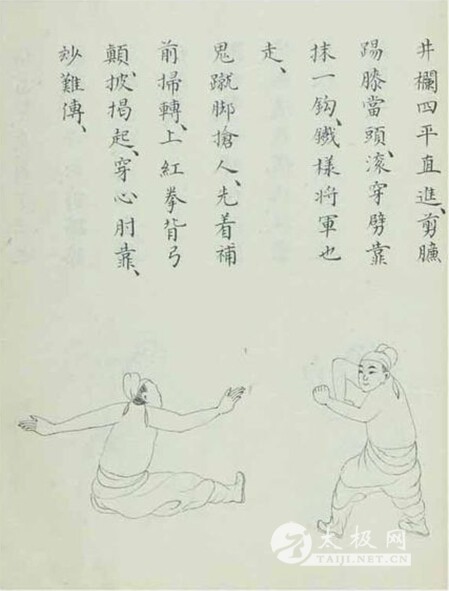 井欄四平直進、剪臁
踢膝當頭、滚穿劈靠
抹一鈎、鐵様将軍也
走、
鬼蹴脚搶人、先着補
前掃轉、上紅拳背弓
顛披揭起、穿心肘靠、
玅難傳、
太极网
TAIJI.NET.CN